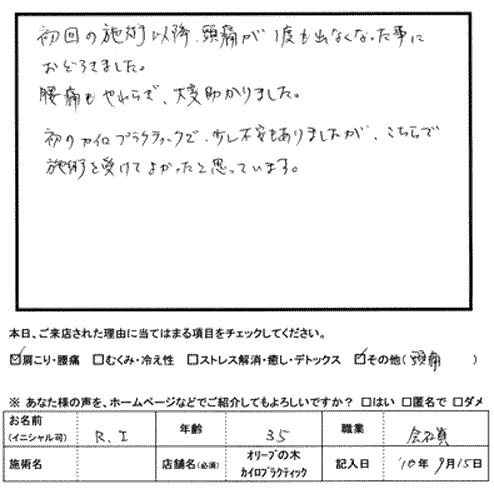 初回の施術以降、頭痛が1度も出なくなった事に
おどろきました。
腰痛もやわらぎ、大変助かりました。
初のカイロプラクティックで、少し不安もありましたが、こちらで
施術を受けてよかったと思っています。
本日、ご来店された理由に当てはまる項目をチェックしてください。
☑肩こり・腰痛 □むくみ・冷え性 □ストレス解消・癒し・デトックス ☑その他(頭痛)
※ あなた様の声を、ホームページなどでご紹介してもよろしいですか? □はい □匿名で □ダメ
お名前(イニシャル可) R.I 年齢 35 職業 会社員
施術名 店舗名(必須) オリーブの木 カイロプラクティック 記入日 '10年 9月15日